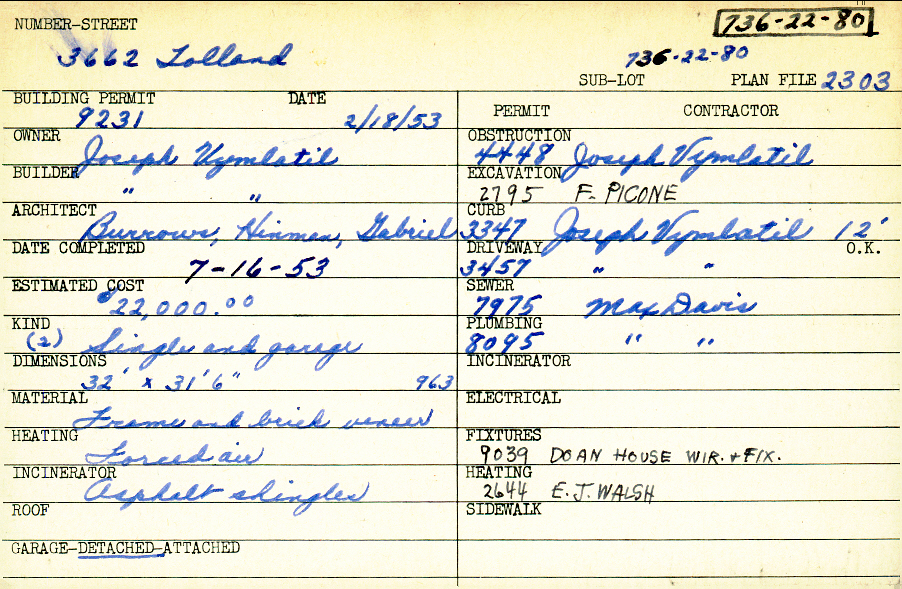 NUMBER-STREET
736-22-80
3662 Tolland
736-22-80
SUB-LOT PLAN FILE 2303
BUILDING PERMIT DATE
9231 2/18/53
PERMIT CONTRACTOR
OWNER
Joseph Vymlatil
OBSTRUCTION
4448 Joseph Vymlatil
BUILDER
" "
EXCAVATION
2795 F. PICONE
ARCHITECT
Burrows, Hinman, Gabriel
CURB
3347 Joseph Vymlatil 12'
DATE COMPLETED
7-16-53
DRIVEWAY O.K.
3457 " "
ESTIMATED COST
$22,000.00
SEWER
7975 Max Davis
KIND
(2) Single and garage
PLUMBING
8095 " "
DIMENSIONS
32' x 31'6" 963
INCINERATOR
MATERIAL
Frame and brick veneer
ELECTRICAL
HEATING
Forced air
FIXTURES
9039 DOAN HOUSE WIR. + FIX.
INCINERATOR
Asphalt shingles
HEATING
2644 E. J. WALSH
ROOF
SIDEWALK
GARAGE-DETACHED-ATTACHED